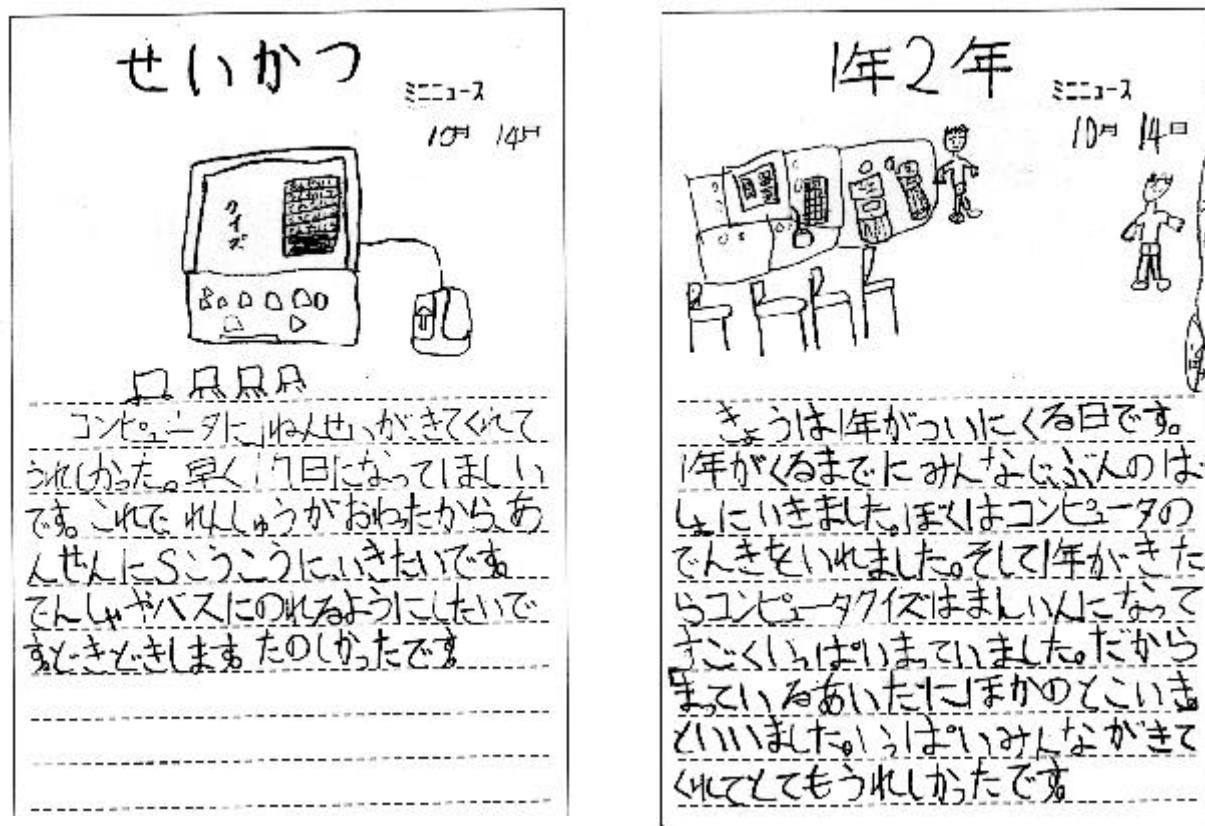 せいかつ
ミニニュース
10月 14日
クイズ
コンピュータに1ねんせいが、きてくれて
うれしかった。早く17日になってほしい
です。これで、れんしゅうがおわったから、あ
んぜんにSこうこうに、いきたいです。
でんしゃやバスにのれるようにしたいで
す。どきどきします。たのしかったです。
1年2年
ミニニュース
10月 14日
きょうは1年がついにくる日です。
1年がくるまでにみんなじぶんのば
しょにいきました。ぼくはコンピュータの
でんきをいれました。そして1年がきた
らコンピュータクイズはまんいんになって
すごくいっぱいまっていました。だから
「まっているあいだにほかのとこいき。
といいました。いっぱいみんながきて
くれてとてもうれしかったです。